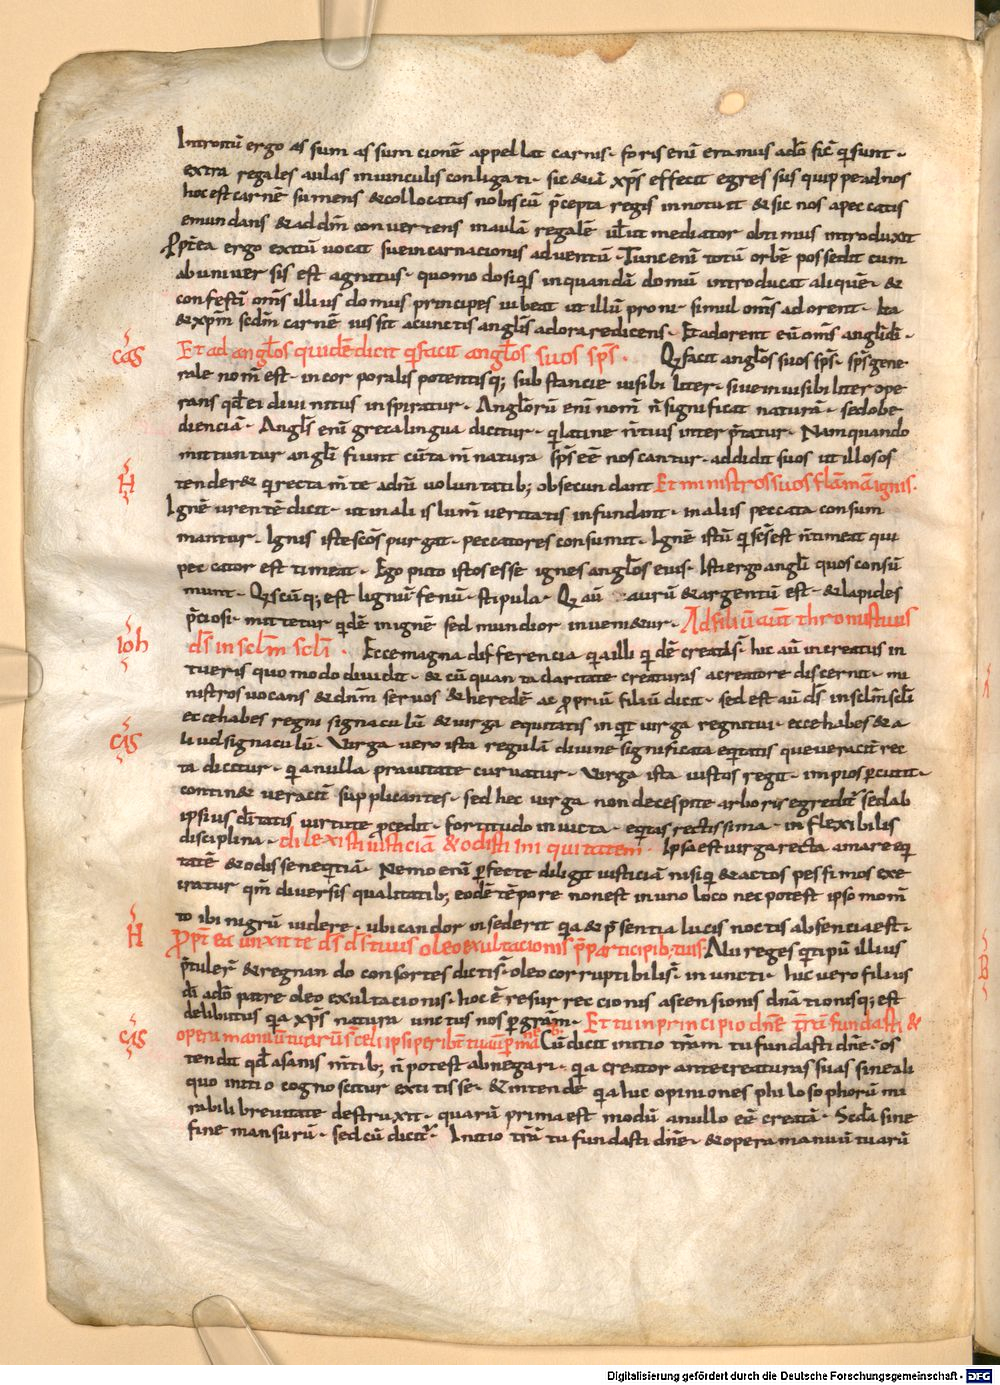 Introitū ergo as sum as sum cionē appellat carnis · foris enī eramus a dō sic̄ qͥ sunt ·
extra regales aulas in uinculis conligati · sic & uā xp̄s effecit egres sus quippe ad nos
hoc est carnē sumens & collocatus nobiscū p̄cepta regis innotuit & sic nos a peccatis
emundans & ad dn̄m conuertens in aulā regalē ul̄ ut mediator obtimus introduxit
Ꝓpt̄ea ergo exitū uocat sue incarnacionis aduentū · Tunc enī totū orbē possedit cum
ab uniuersis est agnitus · quomodo si qͥs in quandā domū introducat aliquē · &
confestī om̄s illius domus principes iubeat ut illū proni · simul om̄s adorent · Ita
& xp̄m sedm̄ carnē iussit a cunctis angl̄is adorare dicens · Et adorent eū om̄s angl̄i dī ·
Et ad angl̄os quidē dicit qͥ facit angl̄os suos sp̄s · Qͥ facit angl̄os suos sp̄s · sp̄s gene
rale nom̄ est · incorporalis potentisq; substancie uisibiliter · siue inuisibiliter ope
rans qd̄ ei diuinitus inspiratur · Anglorū enī nom̄ n̄ significat naturā · sed obe
dienciā · Angl̄s enī greca lingua dicitur · qͥ latine n̄tius interp̄tatur · Nam quando
mittuntur angl̄i fiunt cūta m̄ natura sp̄s eē noscantur · addidit suos ut illos os
tender& qͥ recta m̄te ad n̄ū uoluntatib; obsecundant Et ministros suos flāmā ignis ·
Ignē urentē dicit · ut in aliis lum̄ ueritatis infundant · in aliis peccata consum
mantur · Ignis iste sc̄os purgat · peccatores consumit · Ignē istū qͥ sc̄s est n̄ timeat qui
peccator est timeat · Ego puto istos esse ignes angl̄os eius · Isti ergo angl̄i quos consū
munt · Qͥscūq; est lignū fenū · stipula · Qͥ aū aurū & argentū est · & lapides
p̄ciosi · mittetur qͥdē in ignē sed mundior inueni&ur · Ad filiū aut̄ thronus tuus
d̄s in sclm̄ scl̄i · Ecce magna differencia qͥa illi qͥ dē creati s̄ · hic aū increatus in
tueris quomodo diuidit · & cū quanta claritate creaturas a creatore discernit · mi
nistros uocans & dn̄m seruos & heredē ac ꝓpriū filiū dicit · sed est aū d̄s in sclm̄ scl̄i
ecce habes regni signaculū & uirga equitatis in qͥt uirga regni tui · ecce habes & a
liud signaculū · Virga uero ista regulā diuine significat aeqͥtatis que ueracit̄ rec
ta dicitur · qͥa nulla prauitate curuatur · Virga ista iustos regit · impios percutit ·
contin& ueracit̄ supplicantes · sed hec uirga non de cespite arboris egredit̄ sed ab
ipsius dītatis uirtute ꝓcedit · fortitudo inuicta · eqͥtas rectissima · inflexibilis
disciplina · dilexisti iusticiā & odisti iniquitatem · Ipsa est uirga recta amare eqͥ
tatē & odisse neqͥtiā · Nemo enī perfecte diligit iusticiā nisi qͥ & actos pessimos exe
iratur qm̄ diuersis qualitatib; eodē tēpore non est in uno loco nec potest ipso mom̄
to ibi nigrū uidere · ubi candor insederit qͥa & p̄sentia lucis noctis absencia est ·
Ꝓpt̄ ea unxit te d̄s d̄s tuus oleo exultacionis p̄ participib; tuis · Alii reges qͥ tipū illius
p̄tuler̄ & regnando consortes dicti s̄ · oleo corruptibili s̄ inuncti · hic uero filius
dī a dō patre oleo exultacionis · hoc ē resurreccionis ascensionis dn̄ationisq; est
delibutus qͥa xp̄s natura unctus nos per grām · Et tu in principio dn̄e t̄rā fundasti &
opera manuū tuarū s̄ celi ipsi peribt̄ tu aū permanes Cū dicit initio t̄ram tu fundasti dn̄e · os
tendit qd̄ a sanis m̄tib; n̄ potest abnegari · qͥa creator ante creaturas suas sine ali
quo initio cognoscitur extitisse · & intende qͥa huc opiniones philosophorū mi
rabili breuitate destruxit · quarū prima est modū a nullo eē creatā · Seda sine
fine mansurū · sed cū dicit̄ · Initio t̄rā tu fundasti dn̄e · & opera manuū tuarū
cās
H
ioh
cās
H
cās
Digitalisierung gefördert durch die Deutsche Forschungsgemeinschaft - DFG